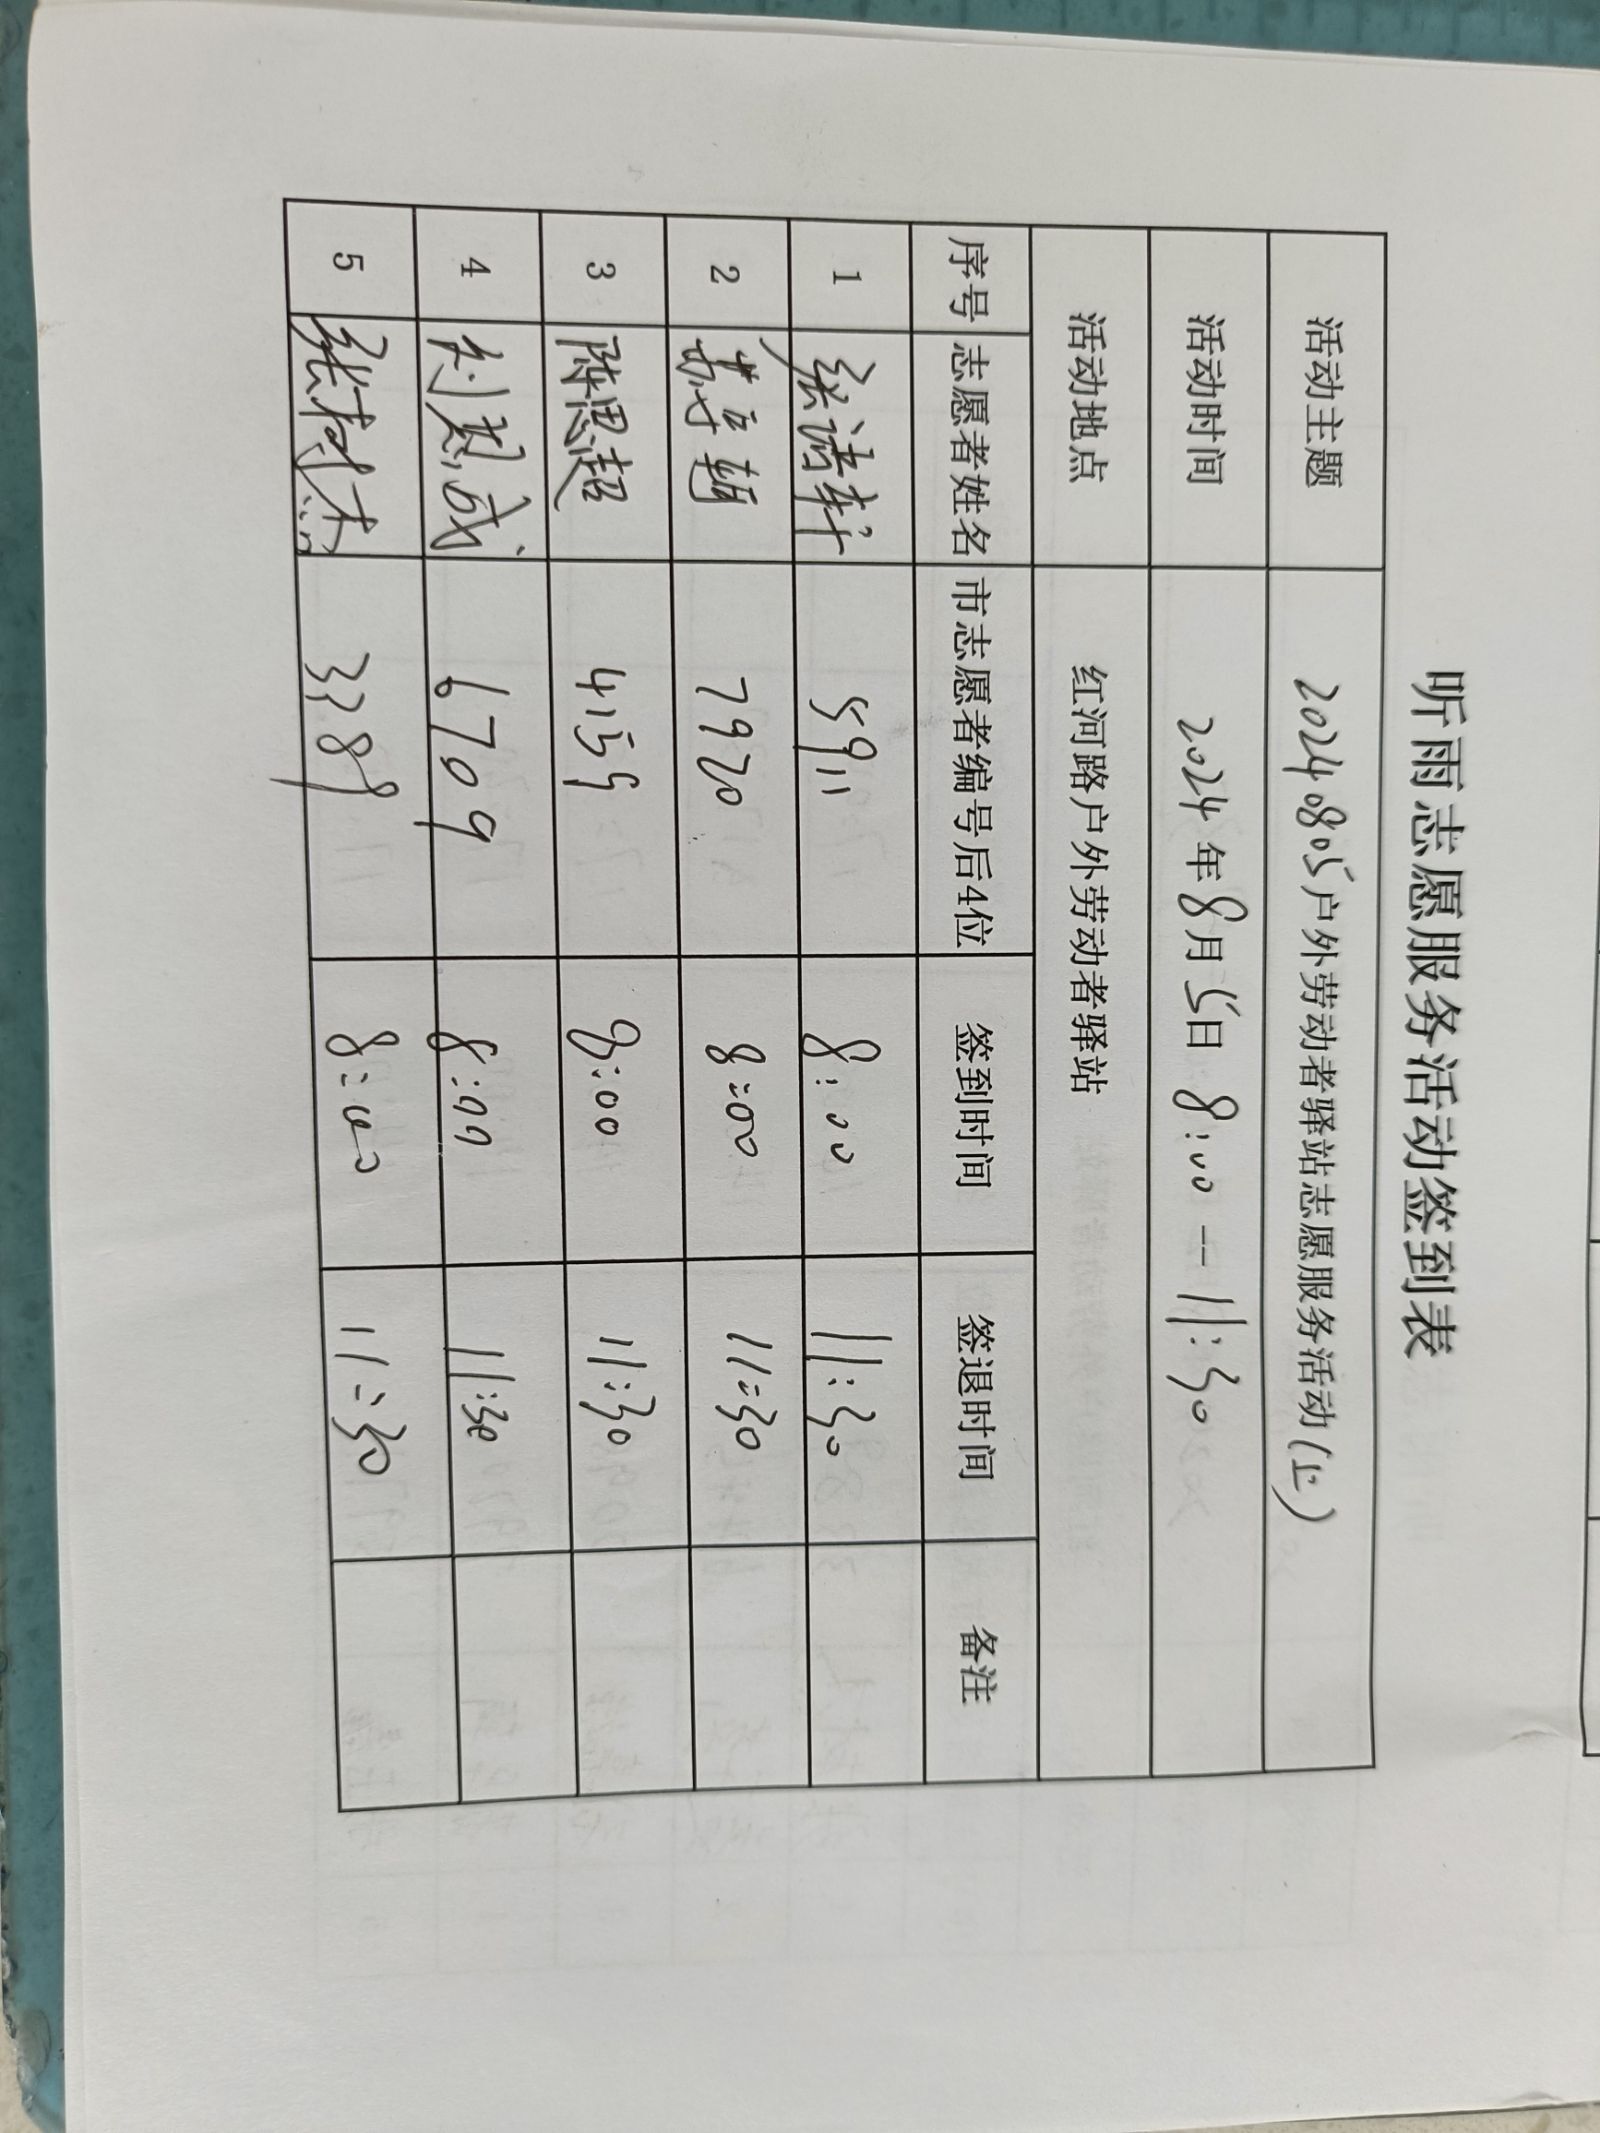 听雨志愿服务活动签到表
活动主题 20240805户外劳动者驿站志愿服务活动(上)
活动时间 2024年8月5日 8:00--11:30
活动地点 红河路户外劳动者驿站
序号 志愿者姓名 市志愿者编号后4位 签到时间 签退时间 备注
1 5911 8:00 11:30
2 7920 8:00 11:30
3 陈思超 4159 8:00 11:30
4 6709 8:00 11:30
5 8:00 11:30